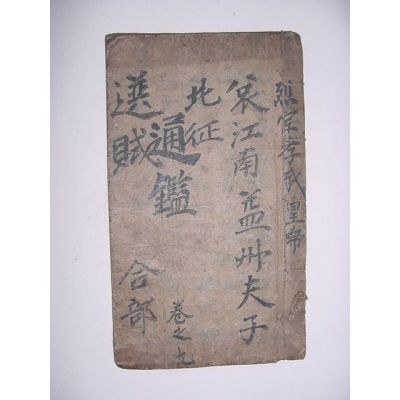 烈宗孝武皇帝
哀江南益州夫子
北征
通鑑
選賦
合部
卷之九